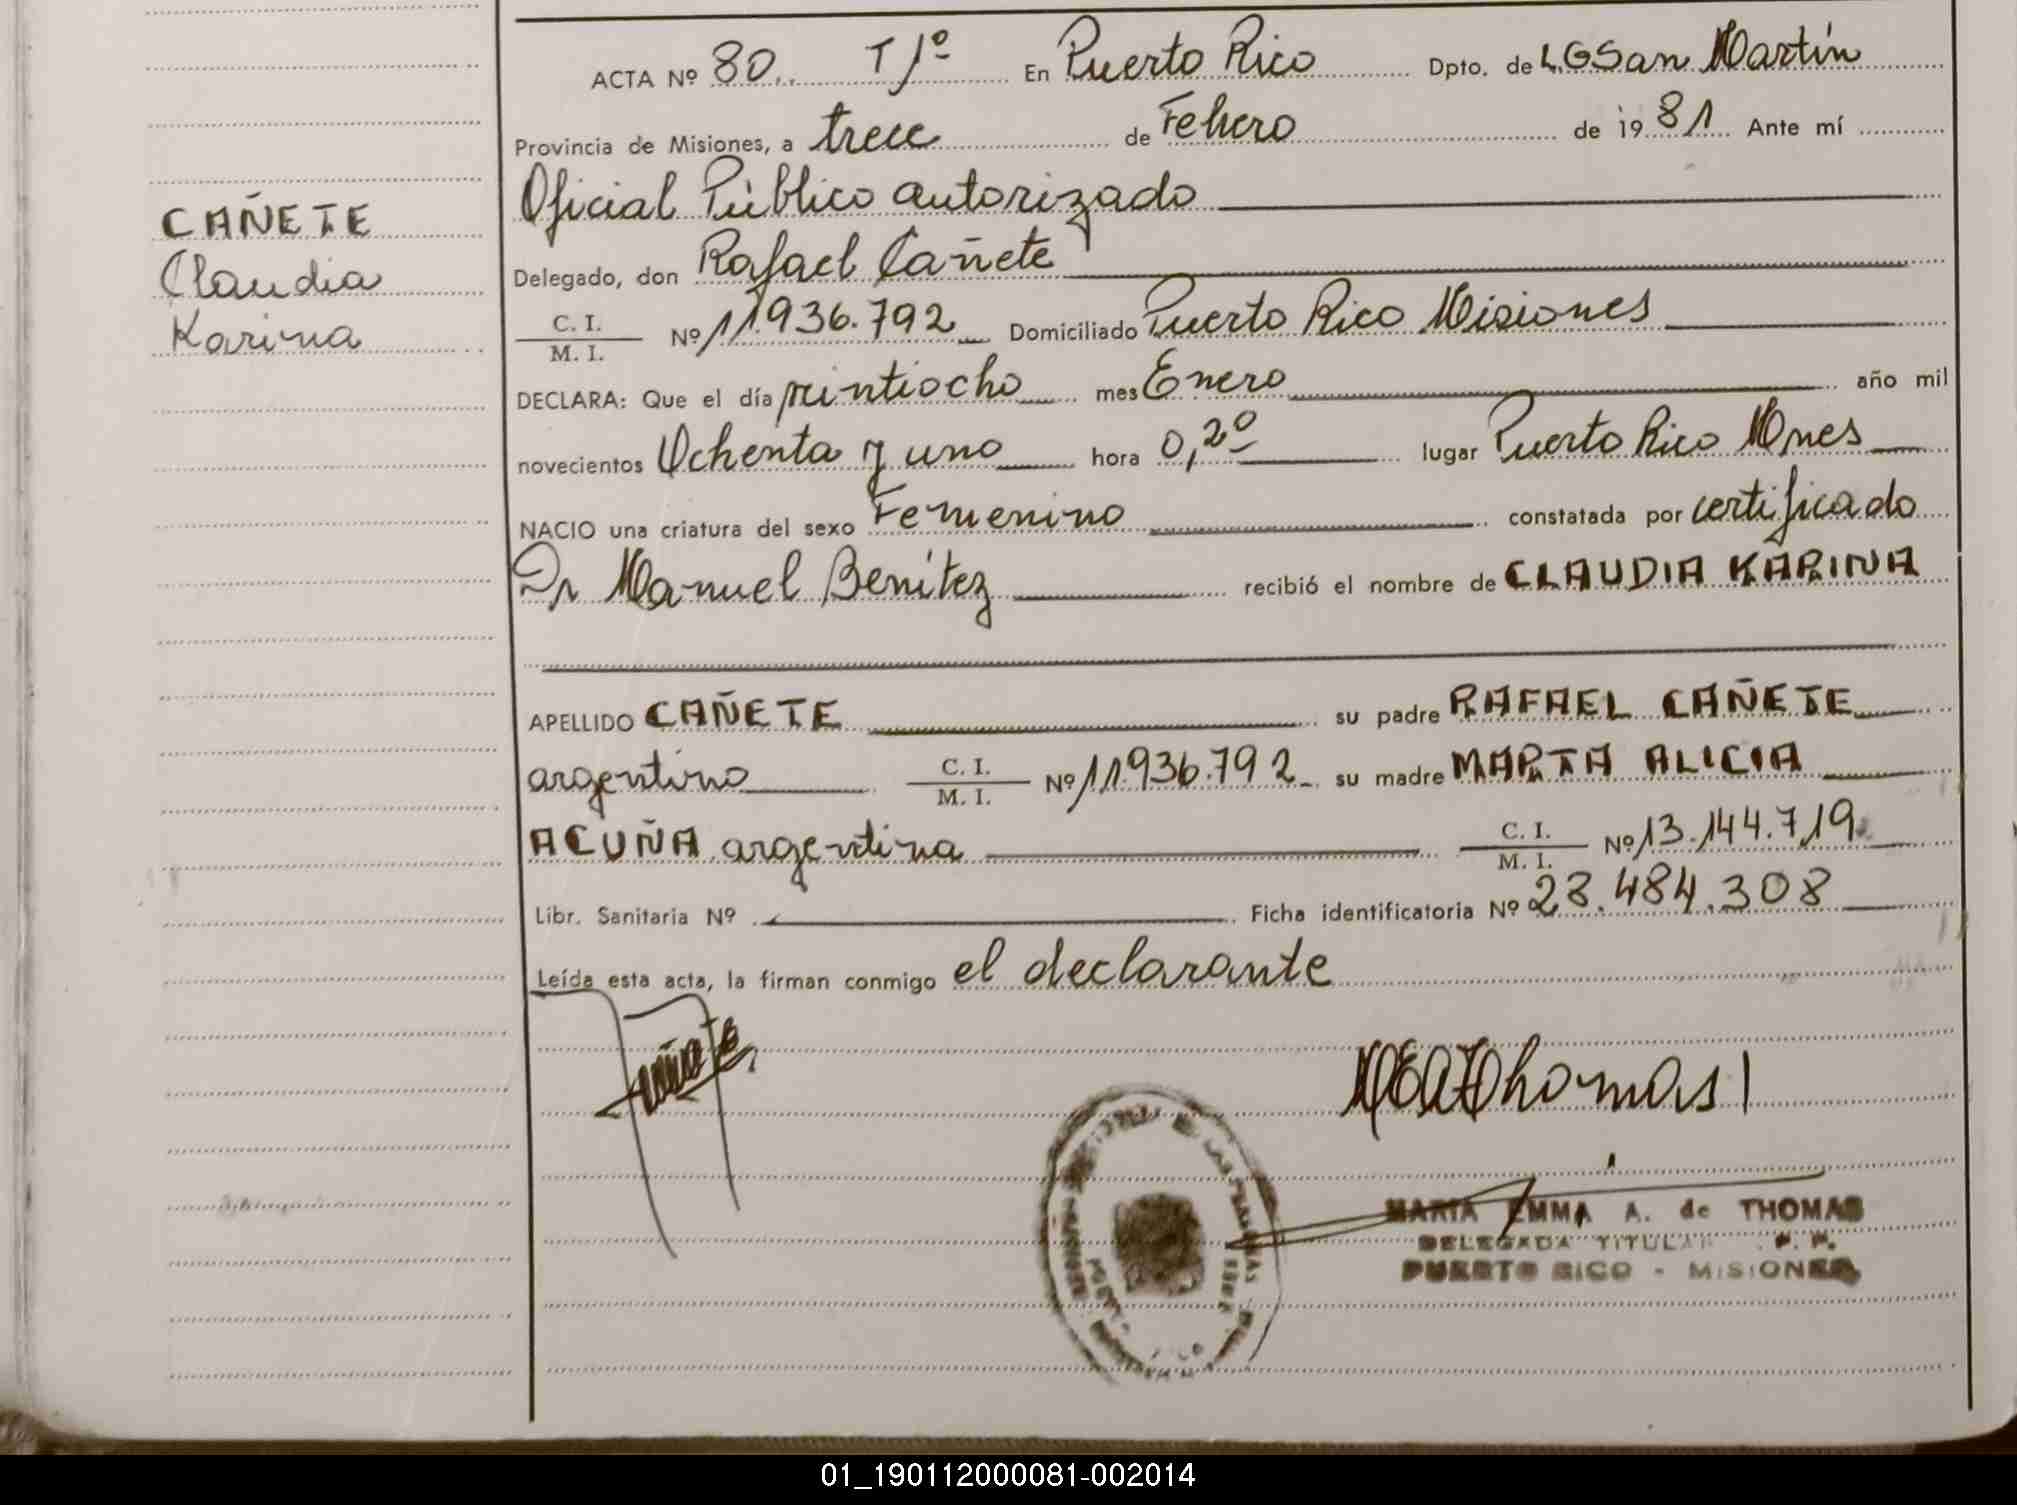 ACTA Nº 80 T/º En Puerto Rico Dpto. de L.G San Martín
Provincia de Misiones, a trece de Febrero de 1981 Ante mí
Oficial Público autorizado
Delegado, don Rafael Cañete
C. I.
M. I.
Nº 11.936.792 Domiciliado Puerto Rico Misiones
DECLARA: Que el día veintiocho mes Enero año mil
novecientos Ochenta y uno hora 0,20 lugar Puerto Rico Mnes
NACIO una criatura del sexo Femenino constatada por certificado
Dr Manuel Benítez recibió el nombre de CLAUDIA KARINA
APELLIDO CAÑETE su padre RAFAEL CAÑETE
argentino C. I. / M. I. Nº 11.936.792 su madre MARTA ALICIA
ACUÑA argentina C. I. / M. I. Nº 13.144.719
Libr. Sanitaria Nº Ficha identificatoria Nº 28.484.308
Leída esta acta, la firman conmigo el declarante
CAÑETE
Claudia
Karina
MARIA EMMA A. de THOMAS
DELEGADA TITULAR
PUERTO RICO - MISIONES
01_190112000081-002014